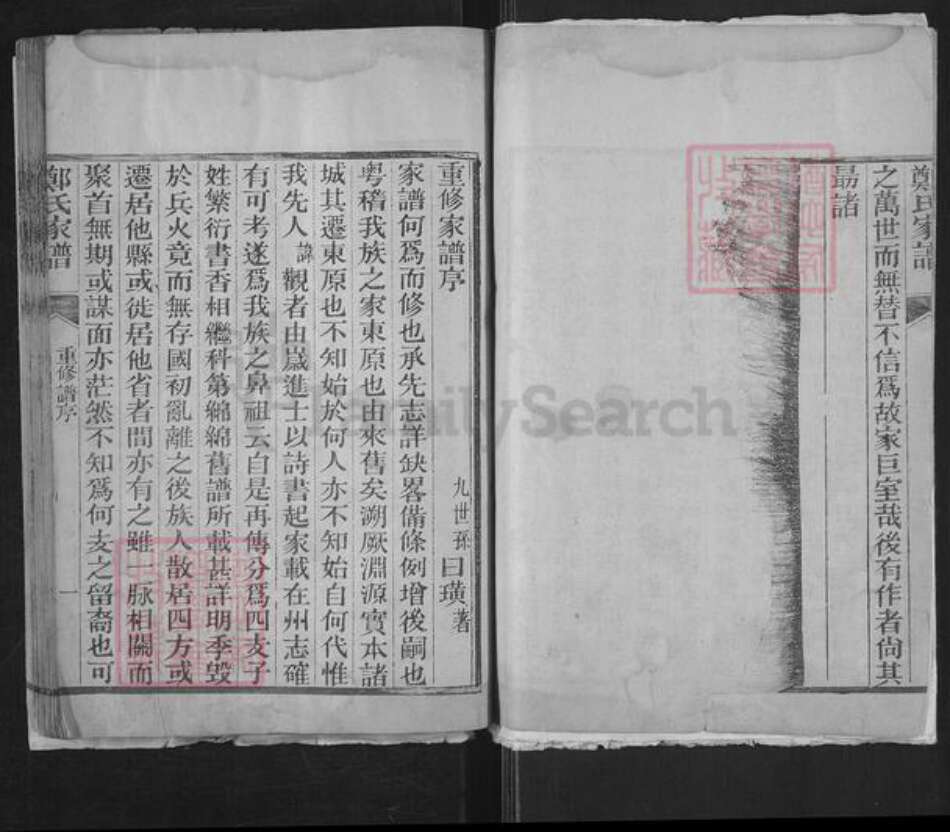 鄭氏家譜
之萬世而無替不信爲故家巨室哉後有作者尙其
勗諸
重修家譜序
九世孫曰璜著
家譜何爲而修也承先志詳缺畧備條例增後嗣也
粤稽我族之家東原也由來舊矣溯厥淵源實本諸
城其遷東原也不知始於何人亦不知始自何代惟
我先人諱觀者由歲進士以詩書起家載在州志確
有可考遂爲我族之鼻祖云自是再傳分爲四支子
姓繁衍書香相繼科第綿綿舊譜所載甚詳明季毀
於兵火竟而無存國初亂離之後族人散居四方或
遷居他縣或徙居他省者間亦有之雖一脉相關而
聚首無期或謀面亦茫然不知爲何支之留裔也可
鄭氏家譜
重修譜序
一
FamilySearch